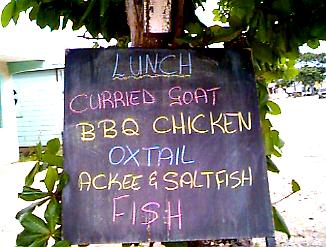 LUNCH
CURRIED GOAT
BBQ CHICKEN
OXTAIL
ACKEE & SALTFISH
FISH